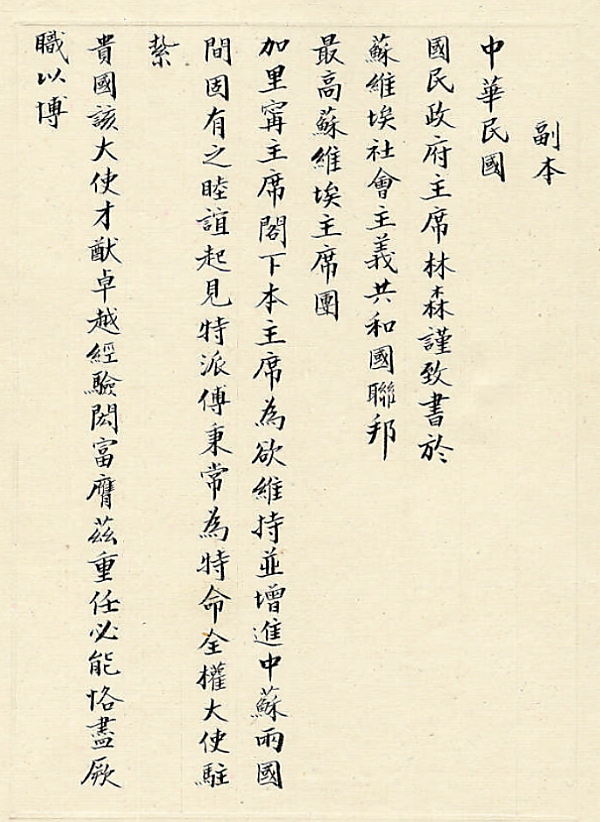 副本
中華民國
國民政府主席林森謹致書於
蘇維埃社會主義共和國聯邦
最高蘇維埃主席團
加里寗主席閣下本主席為欲維持並增進中蘇兩國
間固有之睦誼起見特派傅秉常為特命全權大使駐
紮
貴國該大使才猷卓越經驗閎富膺茲重任必能恪盡厥
職以博